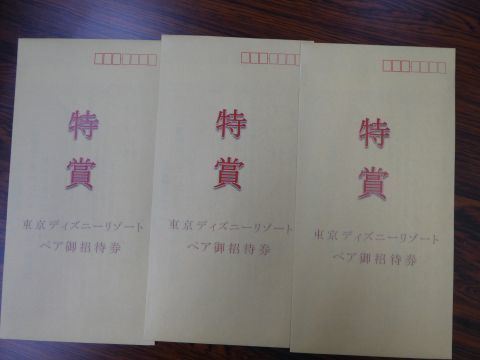 特
賞
東京ディズニーリゾート
ペア御招待券
特
賞
東京ディズニーリゾート
ペア御招待券
特
賞
東京ディズニーリゾート
ペア御招待券